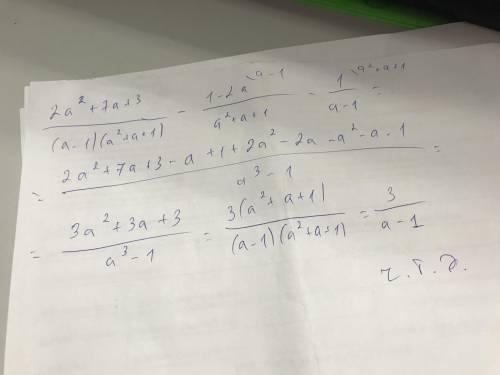 (2a² + 7a + 3)/((a-1)(a²+a+1)) - (1-2a)/(a²+a+1) \a-1 - 1/(a-1) \a²+a+1 =
= (2a² + 7a + 3 - a + 1 + 2a² - 2a - a² - a - 1)/(a³ - 1) =
= (3a² + 3a + 3)/(a³ - 1) = (3(a² + a + 1))/((a-1)(a²+a+1)) = 3/(a-1)
ч.т.д.